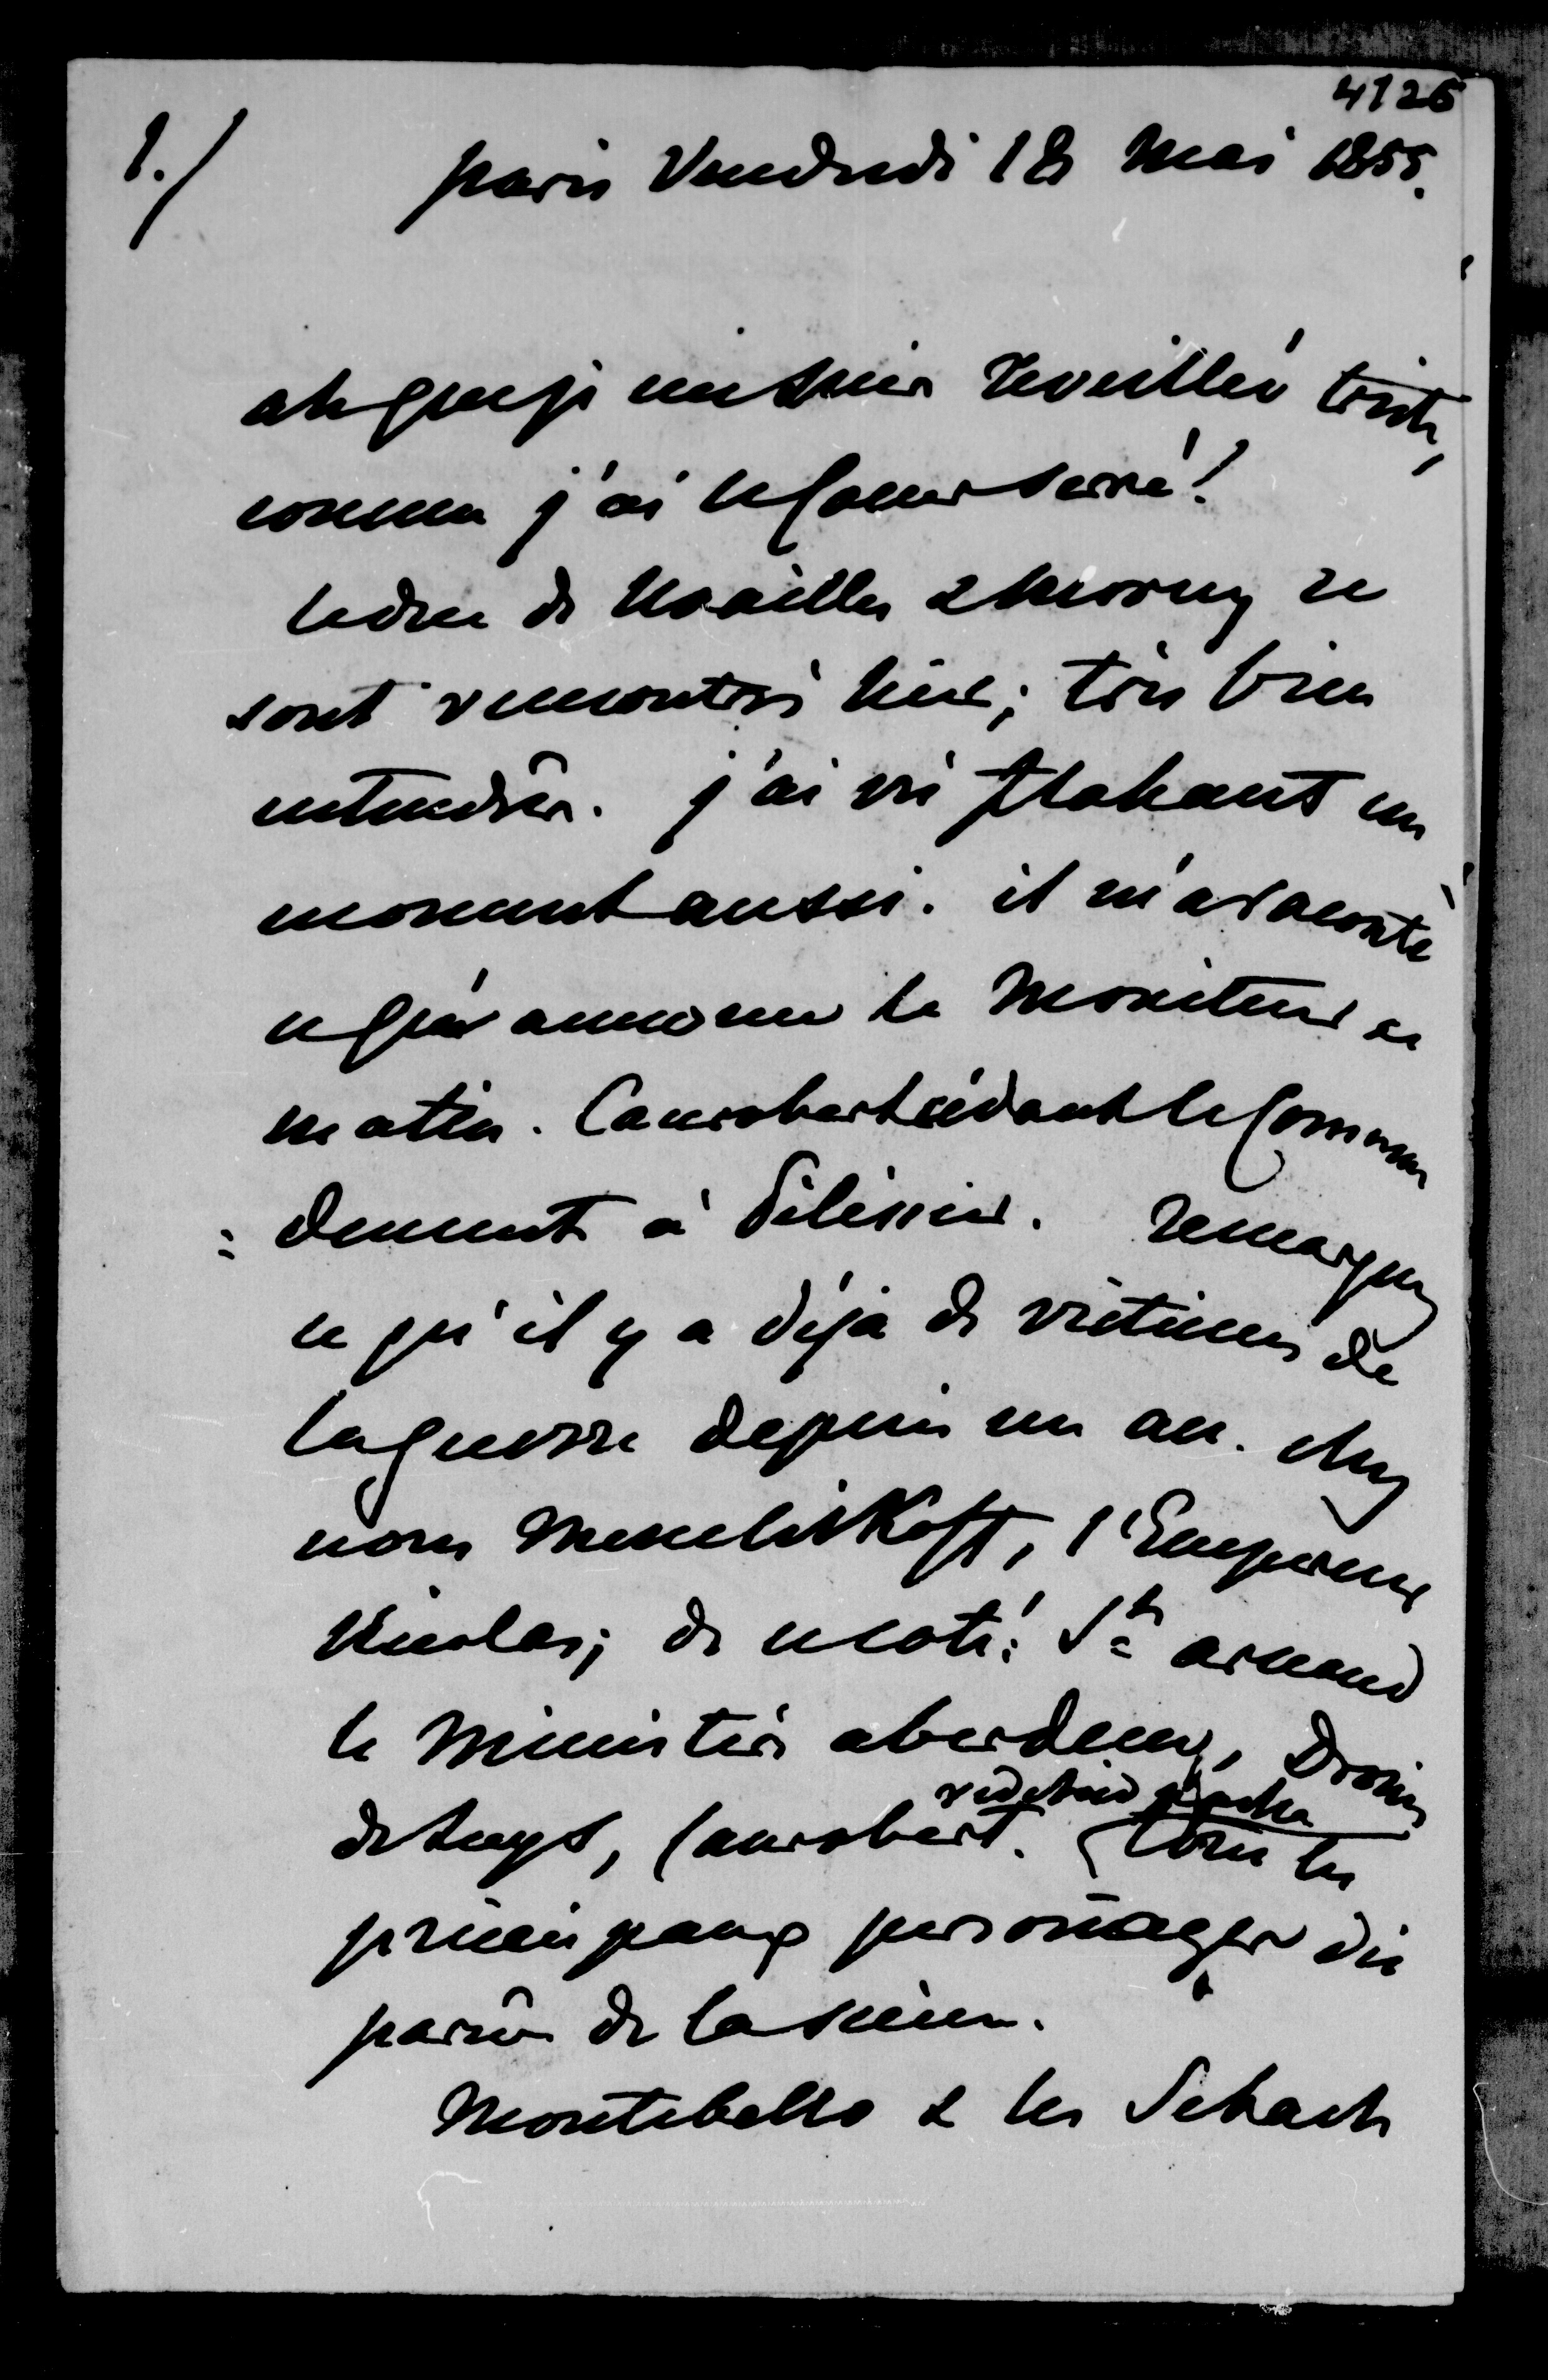 4126
1./ paris Vendredi 18 Mai 1855.
ah que je me suis reveillée triste,
comme j'ai le Coeur serré!
le duc de Noailles & Morny se
sont rencontrés hier; très bien
entendûs. j'ai vu Flahaut un
moment aussi. il m'a raconté
ce que annonce le Moniteur ce
matin. Canrobert cédant le Comman
= dement à Pélissier. remarquez
ce qu'il y a déjà de victimes de
la guerre depuis un an. chez
nous Menchikoff, l'Empereur
Nicolas; de ce coté: St. arnaud
le Ministère aberdeen, Drouin
de Lhuys, Canrobert. redchid pacha
tous les
principaux personages dis
parûs de la scène.
Montebello & les Sebach